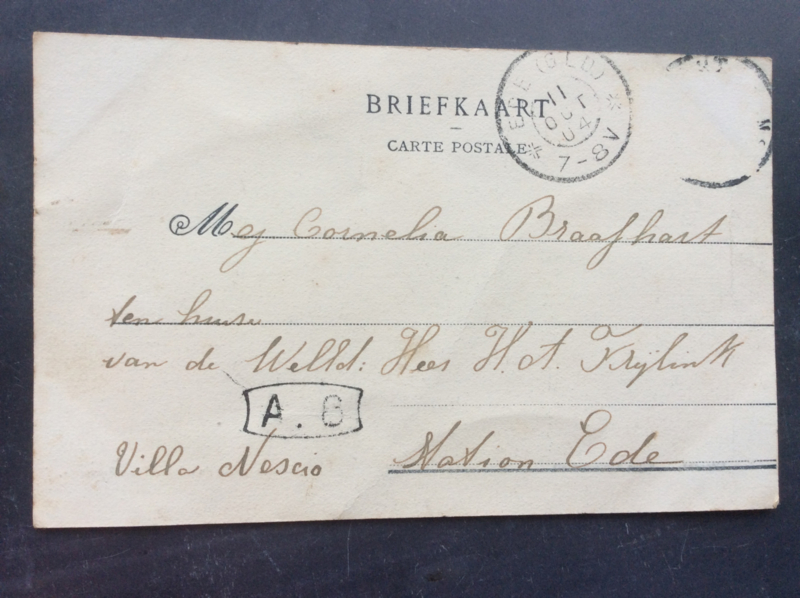 BRIEFKAART
CARTE POSTALE
EDE (GLD)
11
04
7-8V
Mej Cornelia Braafhart
ten huise
van de Weled: Heer H. A.
A. 6
Villa Nescio
Station Ede